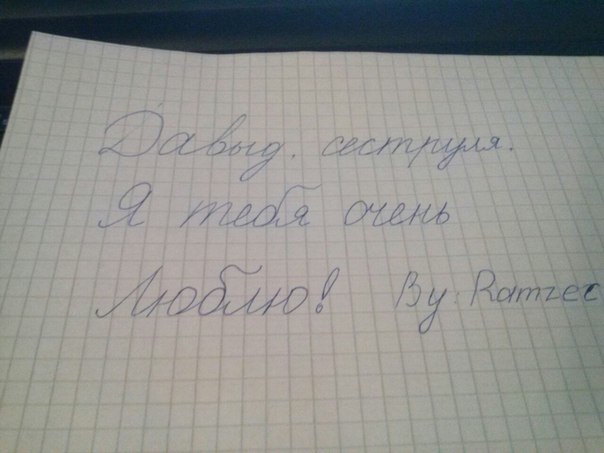 Давыд. сеструля.
Я тебя очень
Люблю! By: Ramzec